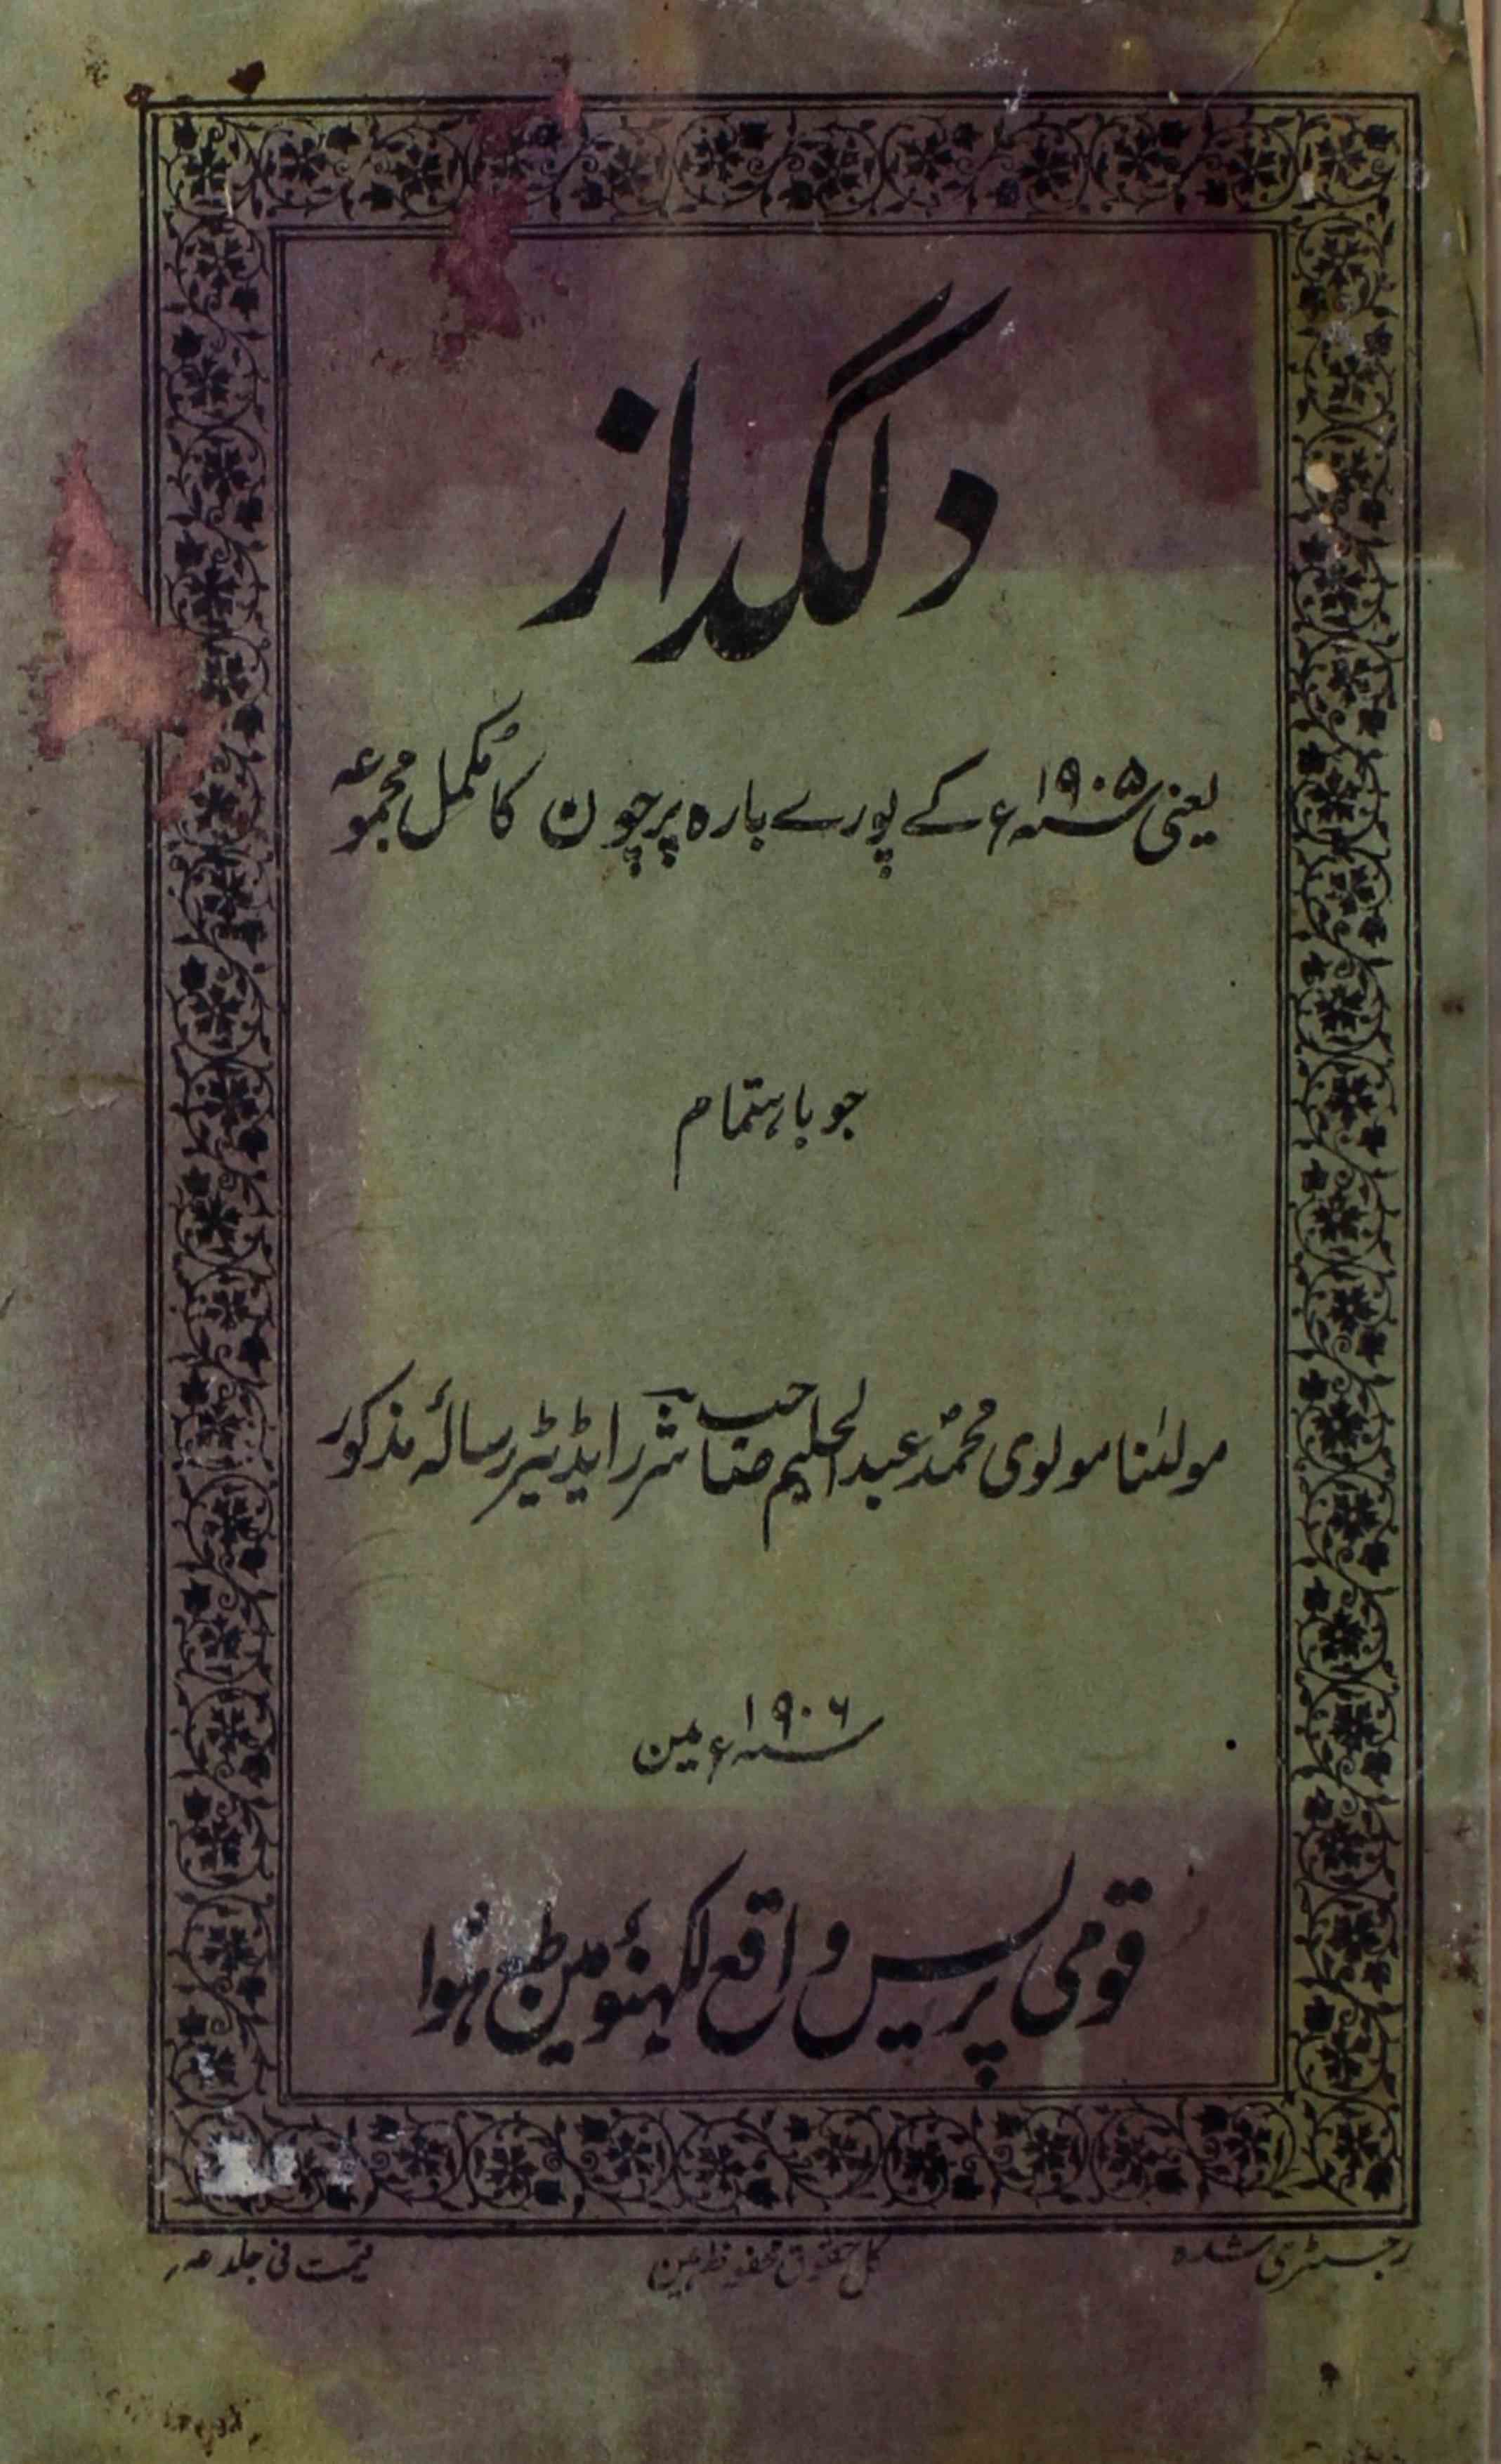 دلگداز
یعنی ۱۹۰۵ سنہء کے پورے بارہ پرچون کا مُکمل مجموعہ
جو باہتمام
مولٰنا مولوی محمدؐ عبدالحلیم صاحب شرر ایڈیٹر رسالۂ مذکور
۱۹۰۶ سنہء مین
قومی پریس واقع لکہنؤ مین طبع ہوا
رجسٹری شدہ
کل حقوق محفوظ ہین
قیمت فی جلد